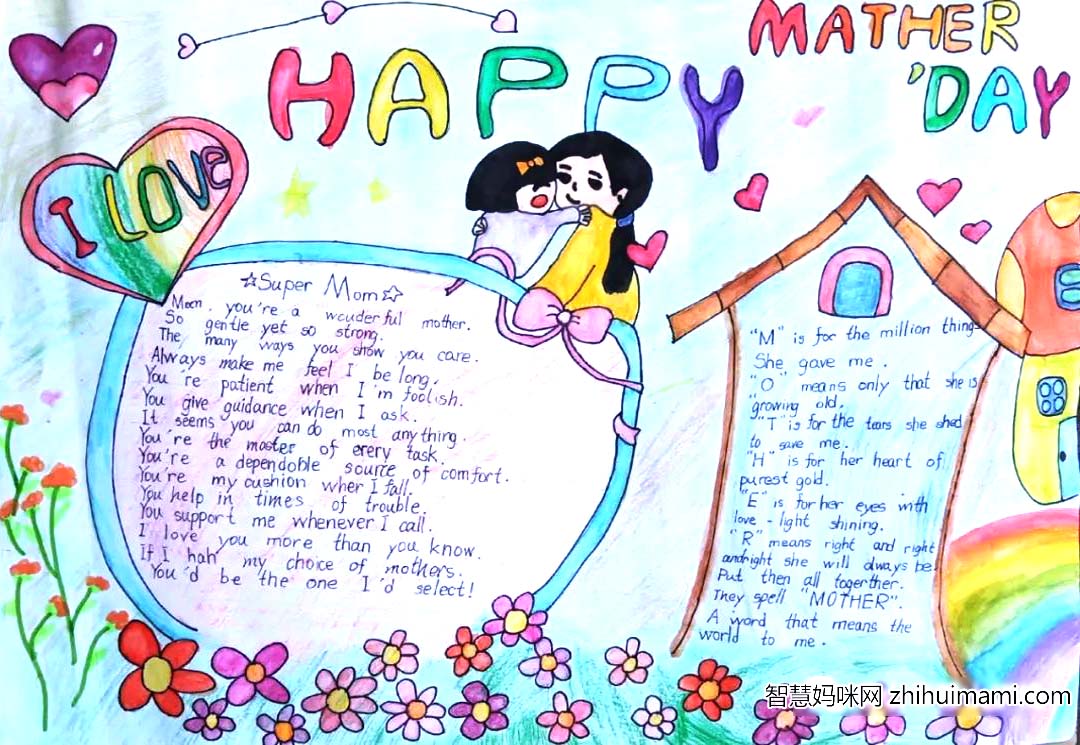 HAPPY
MATHER
'DAY
I LOVE
☆Super Mom☆
Mom, you're a wouderful mother.
So gentle yet so strong.
The many ways you show you care.
Always make me feel I be long.
You're patient when I'm foolish.
You give guidance when I ask.
It seems you can do most anything.
You're the master of erery task.
You're a dependoble source of comfort.
You're my cushion wher I fall.
You help in times of trouble.
You support me whenever I call.
I love you more than you know.
If I hah' my choice of mothers.
You'd be the one I'd select!
"M" is for the million thing
She gave me.
"O" means only that she is
growing old.
"T" is for the tears she shed
to save me.
"H" is for her heart of
purest gold.
"E" is for her eyes with
love-light shining.
"R" means right and right
andright she will always be.
Put then all togerther.
They spell "MOTHER".
A word that means the
world to me.
智慧妈咪网 zhihuimami.com